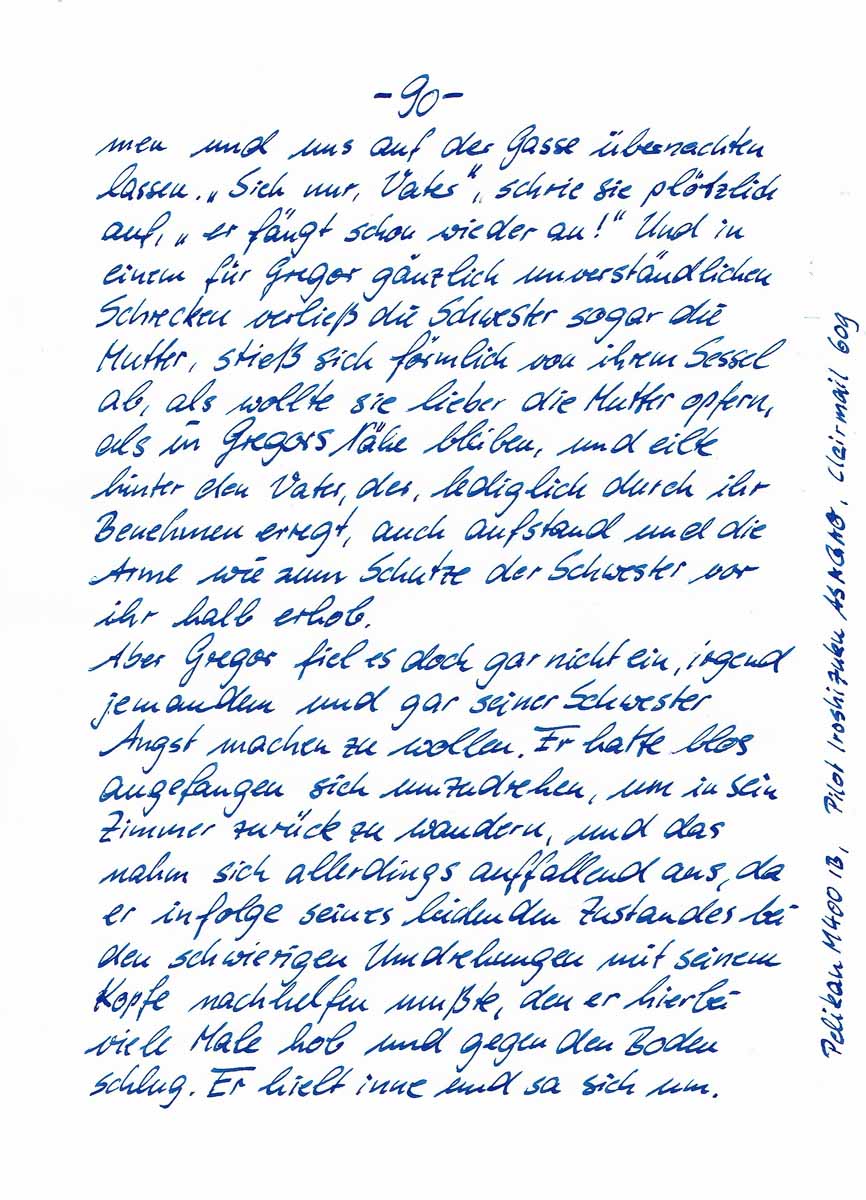 -90-
men und uns auf der Gasse übernachten
lassen. „Sieh nur, Vater", schrie sie plötzlich
auf, „er fängt schon wieder an!" Und in
einem für Gregor gänzlich unverständlichen
Schrecken verließ die Schwester sogar die
Mutter, stieß sich förmlich von ihrem Sessel
ab, als wollte sie lieber die Mutter opfern,
als in Gregors Nähe bleiben, und eilte
hinter den Vater, der, lediglich durch ihr
Benehmen erregt, auch aufstand und die
Arme wie zum Schutze der Schwester vor
ihr halb erhob.
Aber Gregor fiel es doch gar nicht ein, irgend
jemandem und gar seiner Schwester
Angst machen zu wollen. Er hatte blos
angefangen sich umzudrehen, um in sein
Zimmer zurück zu wandern, und das
nahm sich allerdings auffallend aus, da
er infolge seines leidenden Zustandes bei
den schwierigen Umdrehungen mit seinem
Kopfe nachhelfen mußte, den er hierbei
viele Male hob und gegen den Boden
schlug. Er hielt inne und sa sich um.
Pelikan M400 IB, Pilot Iroshizuku ASAGAO, Clairmail 60g